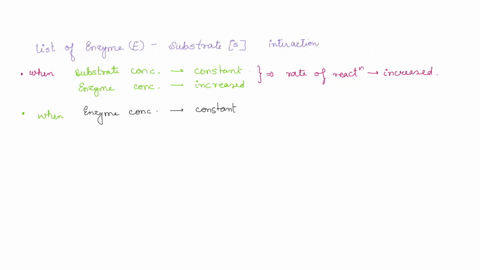 List of Enzyme (E) - Substrate [s] interaction
• when Substrate conc. → constant } ⇒ rate of reactⁿ → increased.
Enzyme conc. → increased
• when Enzyme conc. → constant